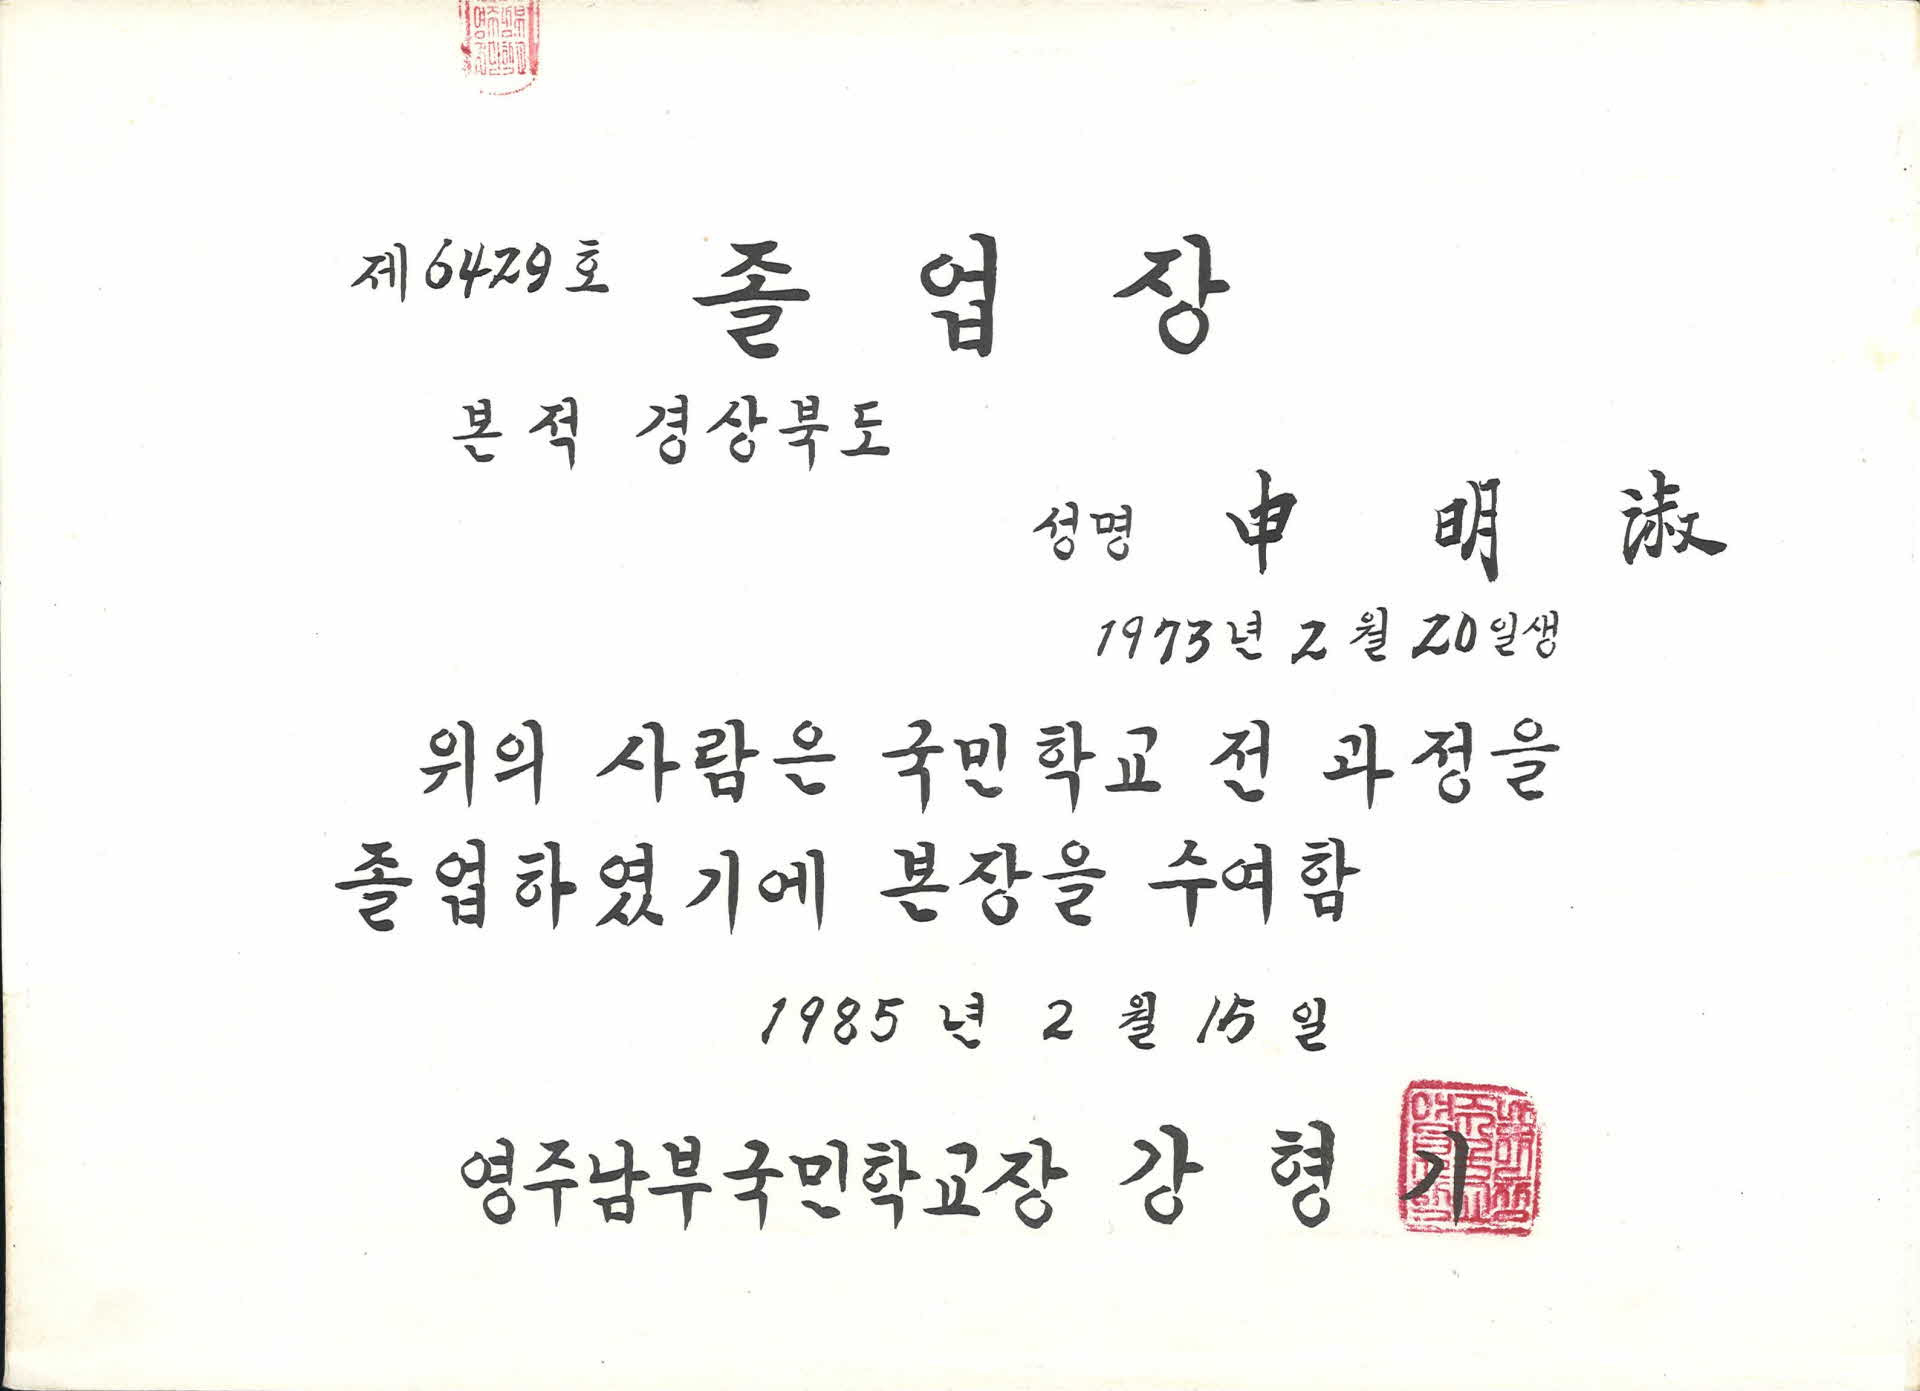 제6429호 졸업장
본적 경상북도
성명 申明淑
1973년 2월 20일생
위의 사람은 국민학교 전 과정을
졸업하였기에 본장을 수여함
1985년 2월 15일
영주남부국민학교장 강형기